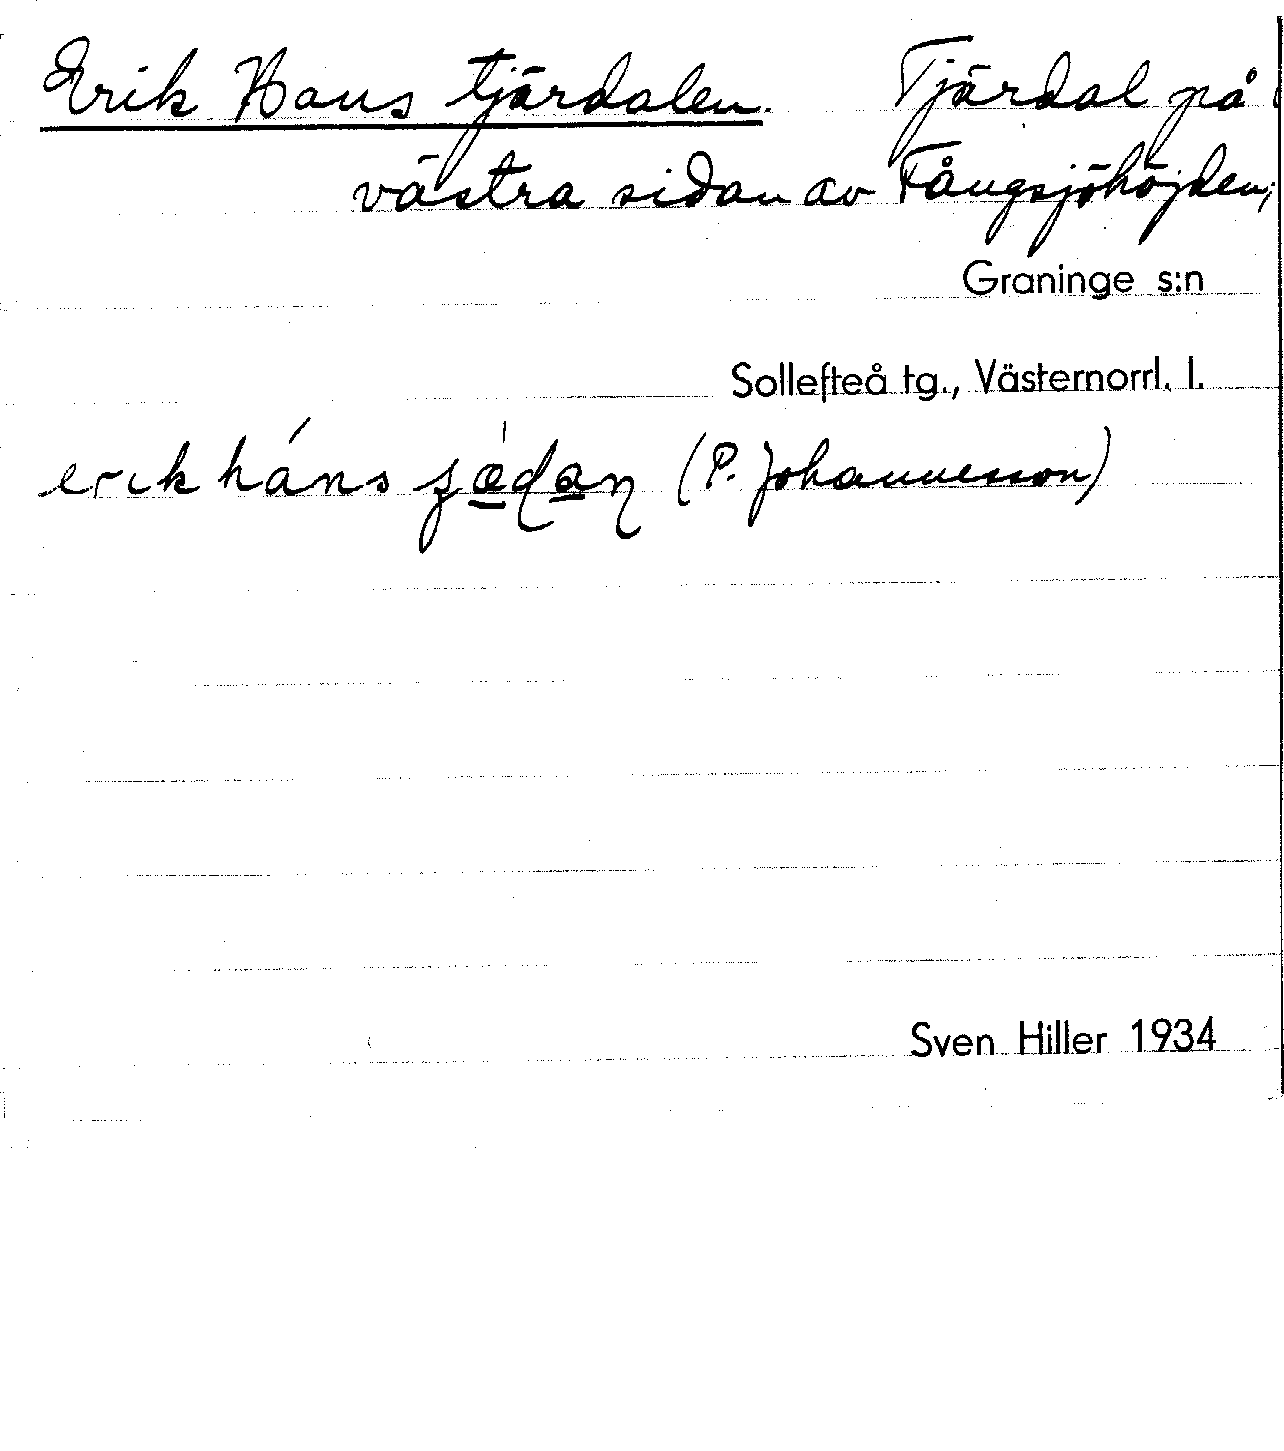 Erik Hans tjärdalen. Tjärdal på
västra sidan av Fångsjöhöjden,
Graninge s:n
Sollefteå tg., Västernorrl. l.
erik háns (P. Johannesson)
Sven Hiller 1934